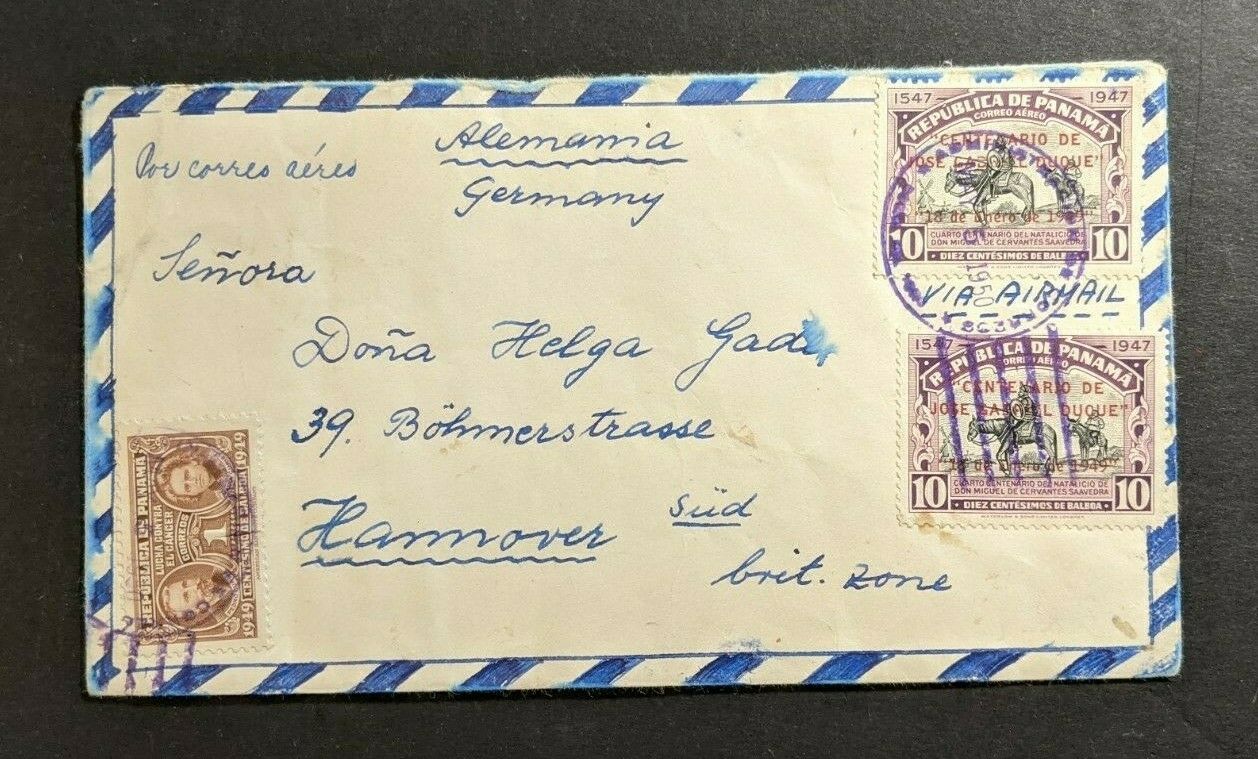 Alemania
Germany
Por correo aéreo
Señora
Doña Helga
39. Böhmerstrasse
Hannover Süd
brit. Zone
1547 1947
REPUBLICA DE PANAMA
CORREO AÉREO
"CENTENARIO DE
JOSE GABRIEL DUQUE"
"18 de Enero de 1949"
CUARTO CENTENARIO DEL NATALICIO DE
DON MIGUEL DE CERVANTES SAAVEDRA
10 DIEZ CENTÉSIMOS DE BALBOA 10
1950
VIA AIRMAIL
1547 1947
REPUBLICA DE PANAMA
CORREO AÉREO
"CENTENARIO DE
JOSE GABRIEL DUQUE"
"18 de Enero de 1949"
CUARTO CENTENARIO DEL NATALICIO DE
DON MIGUEL DE CERVANTES SAAVEDRA
10 DIEZ CENTÉSIMOS DE BALBOA 10
WATERLOW & SONS LIMITED, LONDRES
REPUBLICA DE PANAMA
LUCHA CONTRA
EL CANCER
CORREOS
1
1949 CENTESIMO DE BALBOA 1949